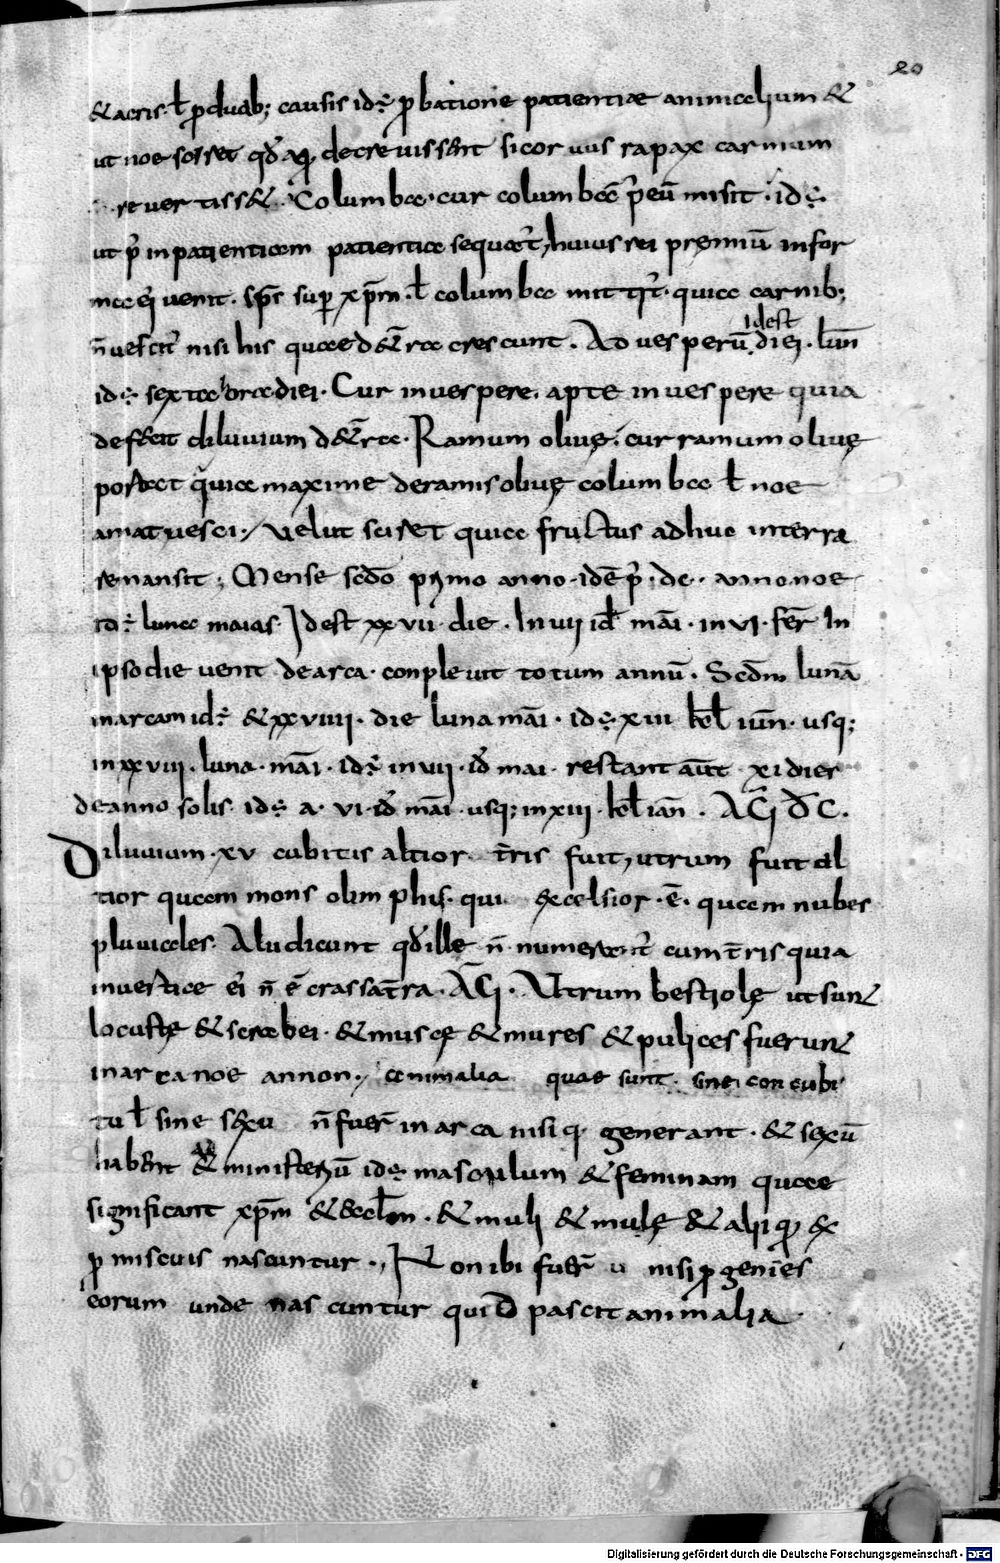 20
& aeris · ł ꝓ duab; causis id÷ ꝓbatione patientiae animalium &
ut noe sciret qđ aq̨ decreuissent si coruus rapax carnium
reuertiss& · Columba · cur columba p̄ eū misit · id÷
ut p̄ inpatientiam patientia sequat̄ huius rei premiū in for
ma ei᷒ uenit · sp̄s sup̱ xp̄m · ł columba mittit̄ · quia carnib;
n̄ uescit̄ nisi his quae d& r̄ra crescunt · Ad uesperū diei · idest · lun̄
id÷ sexta hora diei · Cur in uespere · apte in uespere quia
defecit diluuium d& r̄ra · Ramum oliuę · cur ramum oliuę
portat quia maxime de ramis oliuę columba ł noe
amat uesci · / uelut sciret quia fructus adhuc in terra
remansit · Mense scdo primo anno · idē p̄ · dc · anno noe
id÷ luna maias · Idest xxvii die · In vii id̄ mai · in vi · fer̄ In
ipso die uenit de arca · conpleuit totum annū · Scdm lunā
in arcam id÷ & xxviiii · die luna mai · id÷ xiii kł iun̄ · usq;
in xxviii · luna · mai · id÷ in vii · id̄ mai · restant aūt xi dies
de anno solis id÷ a · vi · id̄ mai · usq; in xiii · kł ian̄ · AḠ DC̄ ·
Diluuium · xv cubitis altior t̄ris fuit, utrum fuit al
tior quam mons olimphis · qui excelsior · ē · quam nubes
pluuiales · Alii dicunt qđ ille n̄ numerat̄ cum t̄ris quia
in uertice ei᷒ n̄ ē crassa t̄ra · AḠ · Utrum bestiolę ut sunt
locustę & scrabei · & muscę & mures & pulices fuerunt
in arca noe an non · / animalia quae sunt sine concubi
tu ł sine sexu n̄ fuer̄ in arca nisi q̨ generant · & sexū
habent ad ministeriū id÷ masculum & feminam quae
significant xp̄m & eccłm · & muli & mulę & alii q̨ ex
ꝓmiscuis nascuntur · , Non ibi fuer̄ nisi ꝓgenies
eorum unde nascuntur quid pascit animalia
Digitalisierung gefördert durch die Deutsche Forschungsgemeinschaft - DFG